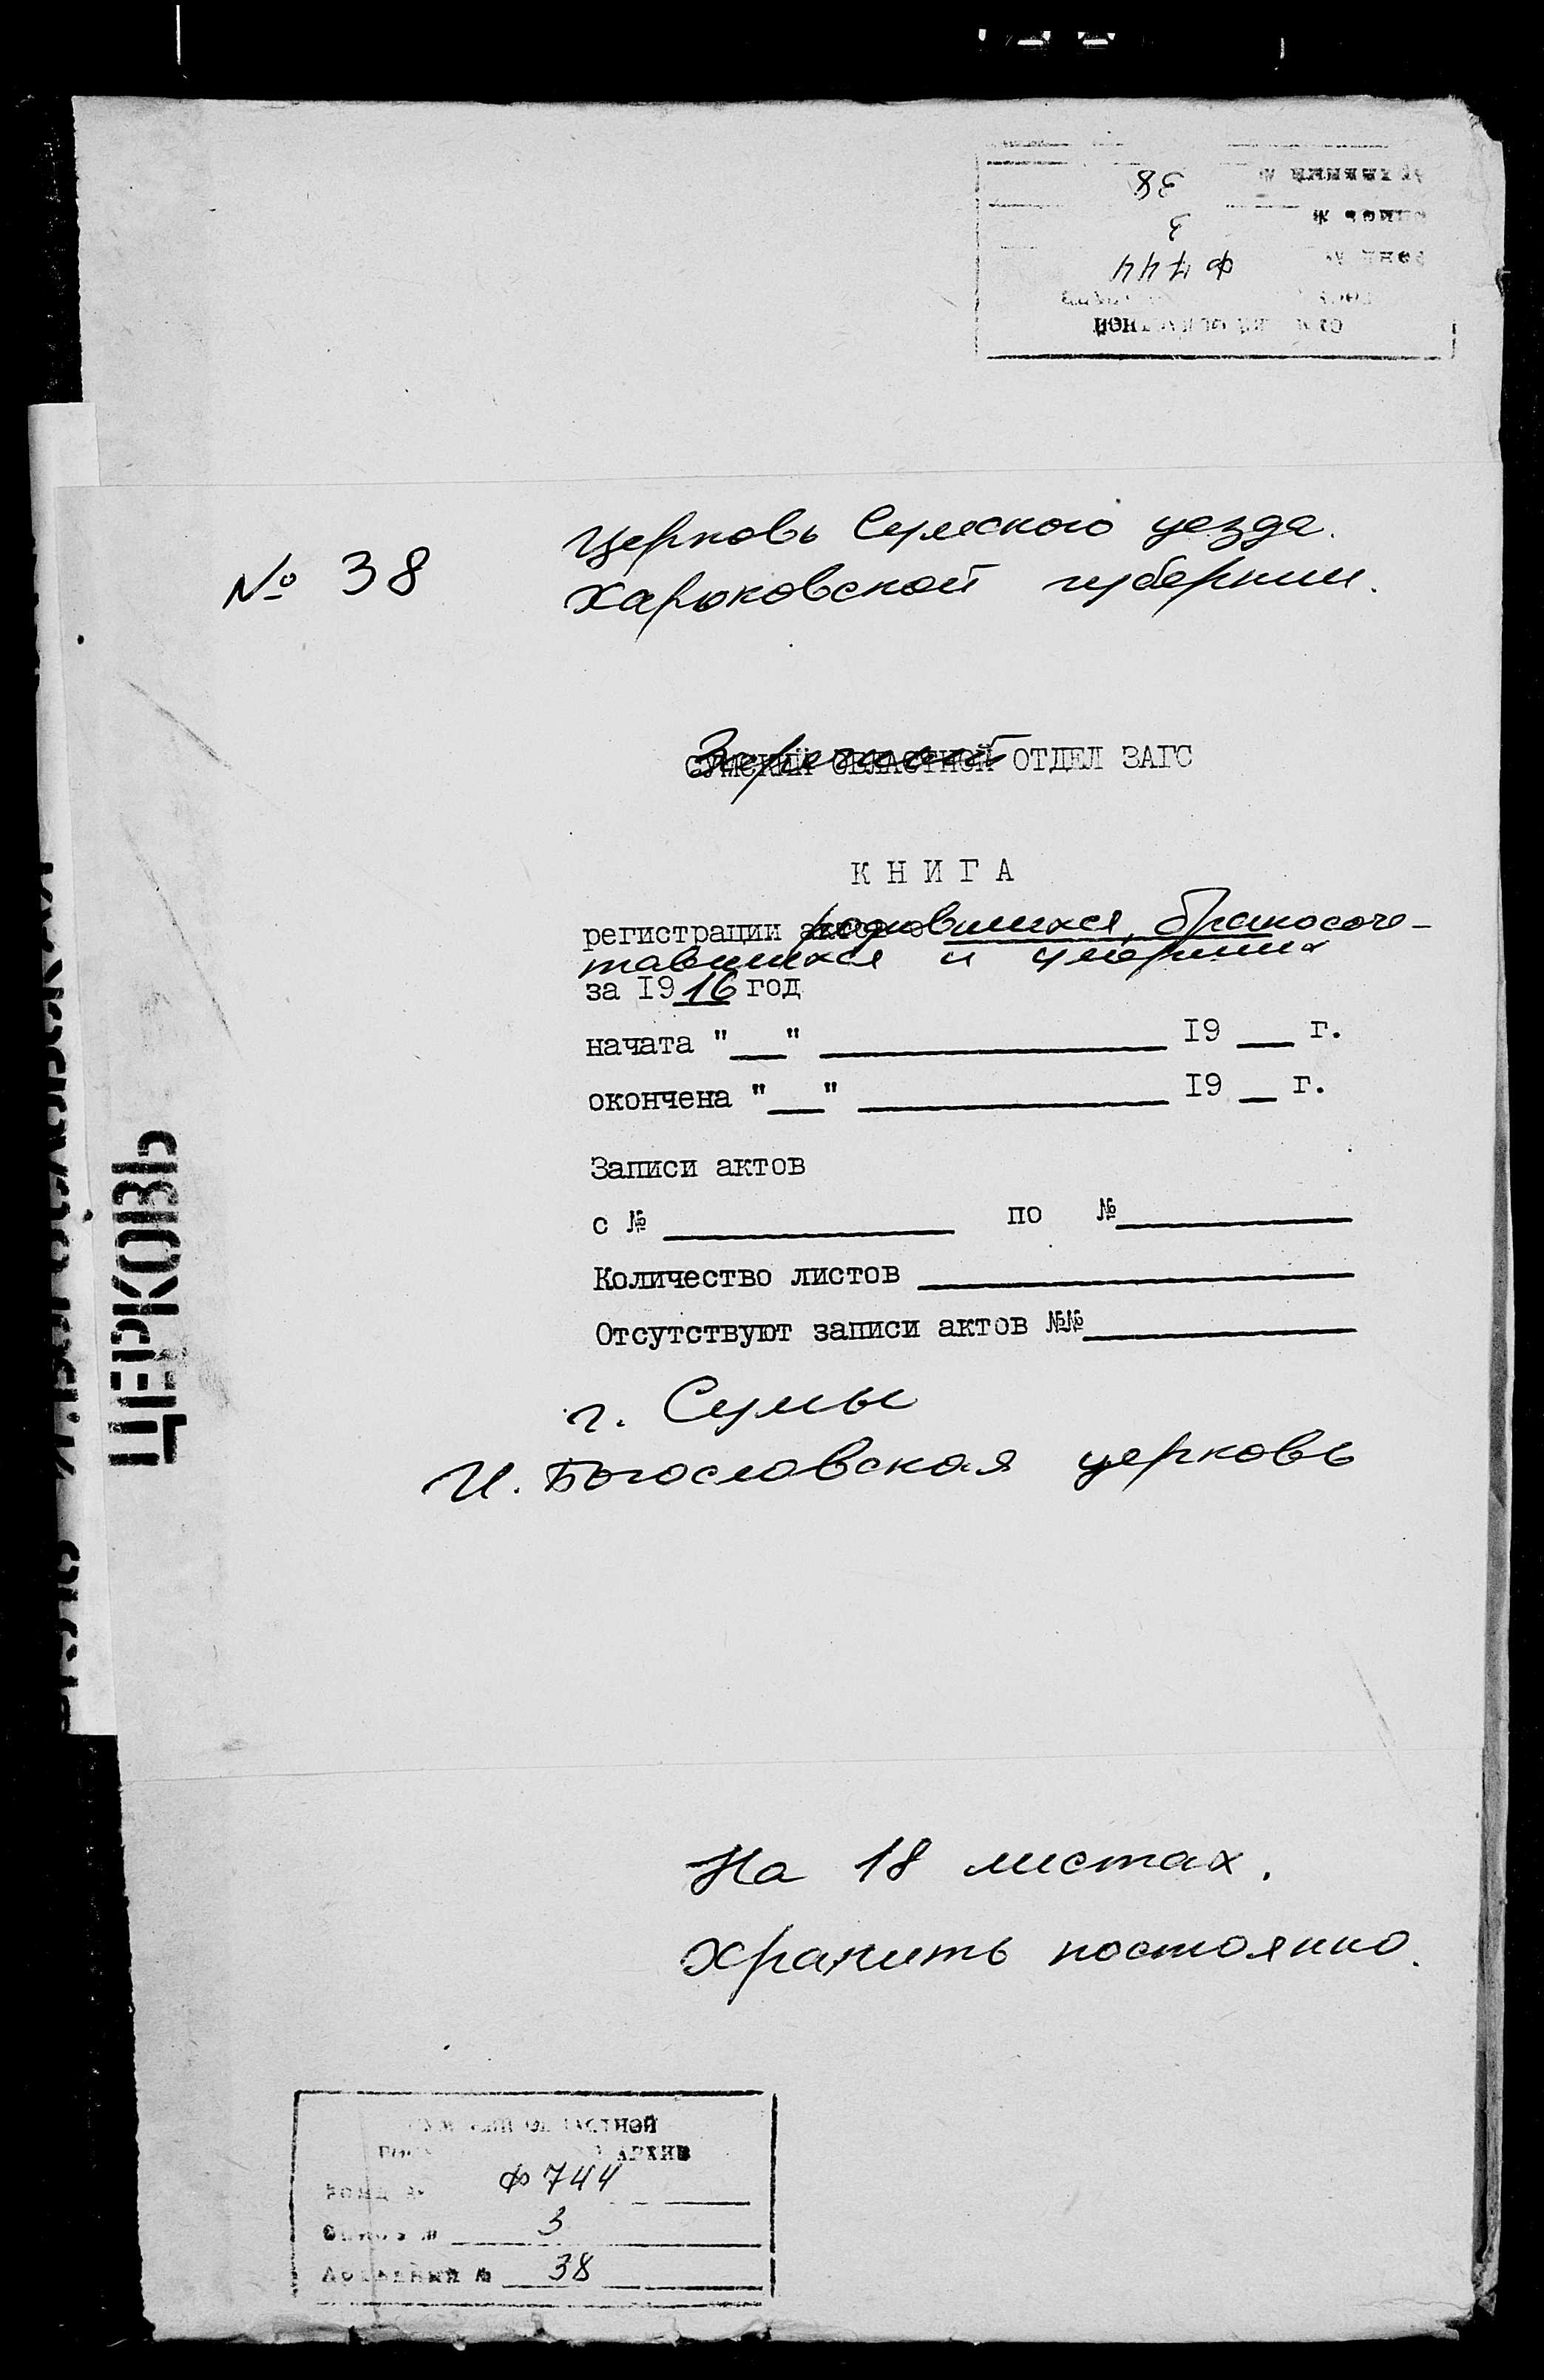 38
3
Ф 744
№ 38
Церковь Сумского уезда.
Харьковской губернии.
Заречный
СУМСКИЙ ОБЛАСТНОЙ ОТДЕЛ ЗАГС
КНИГА
регистрации родившихся, бракосоче-
тавшихся и умерших
за 1916 год
начата "__" ____ 19 __ г.
окончена "__" ____ 19 __ г.
Записи актов
с № ____ по № ____
Количество листов ____
Отсутствуют записи актов №№ ____
г. Сумы
И. Богословская церковь
ЦЕРКОВЬ
На 18 листах.
Хранить постоянно.
АРХИВ
Ф 744
3
Архивный № 38